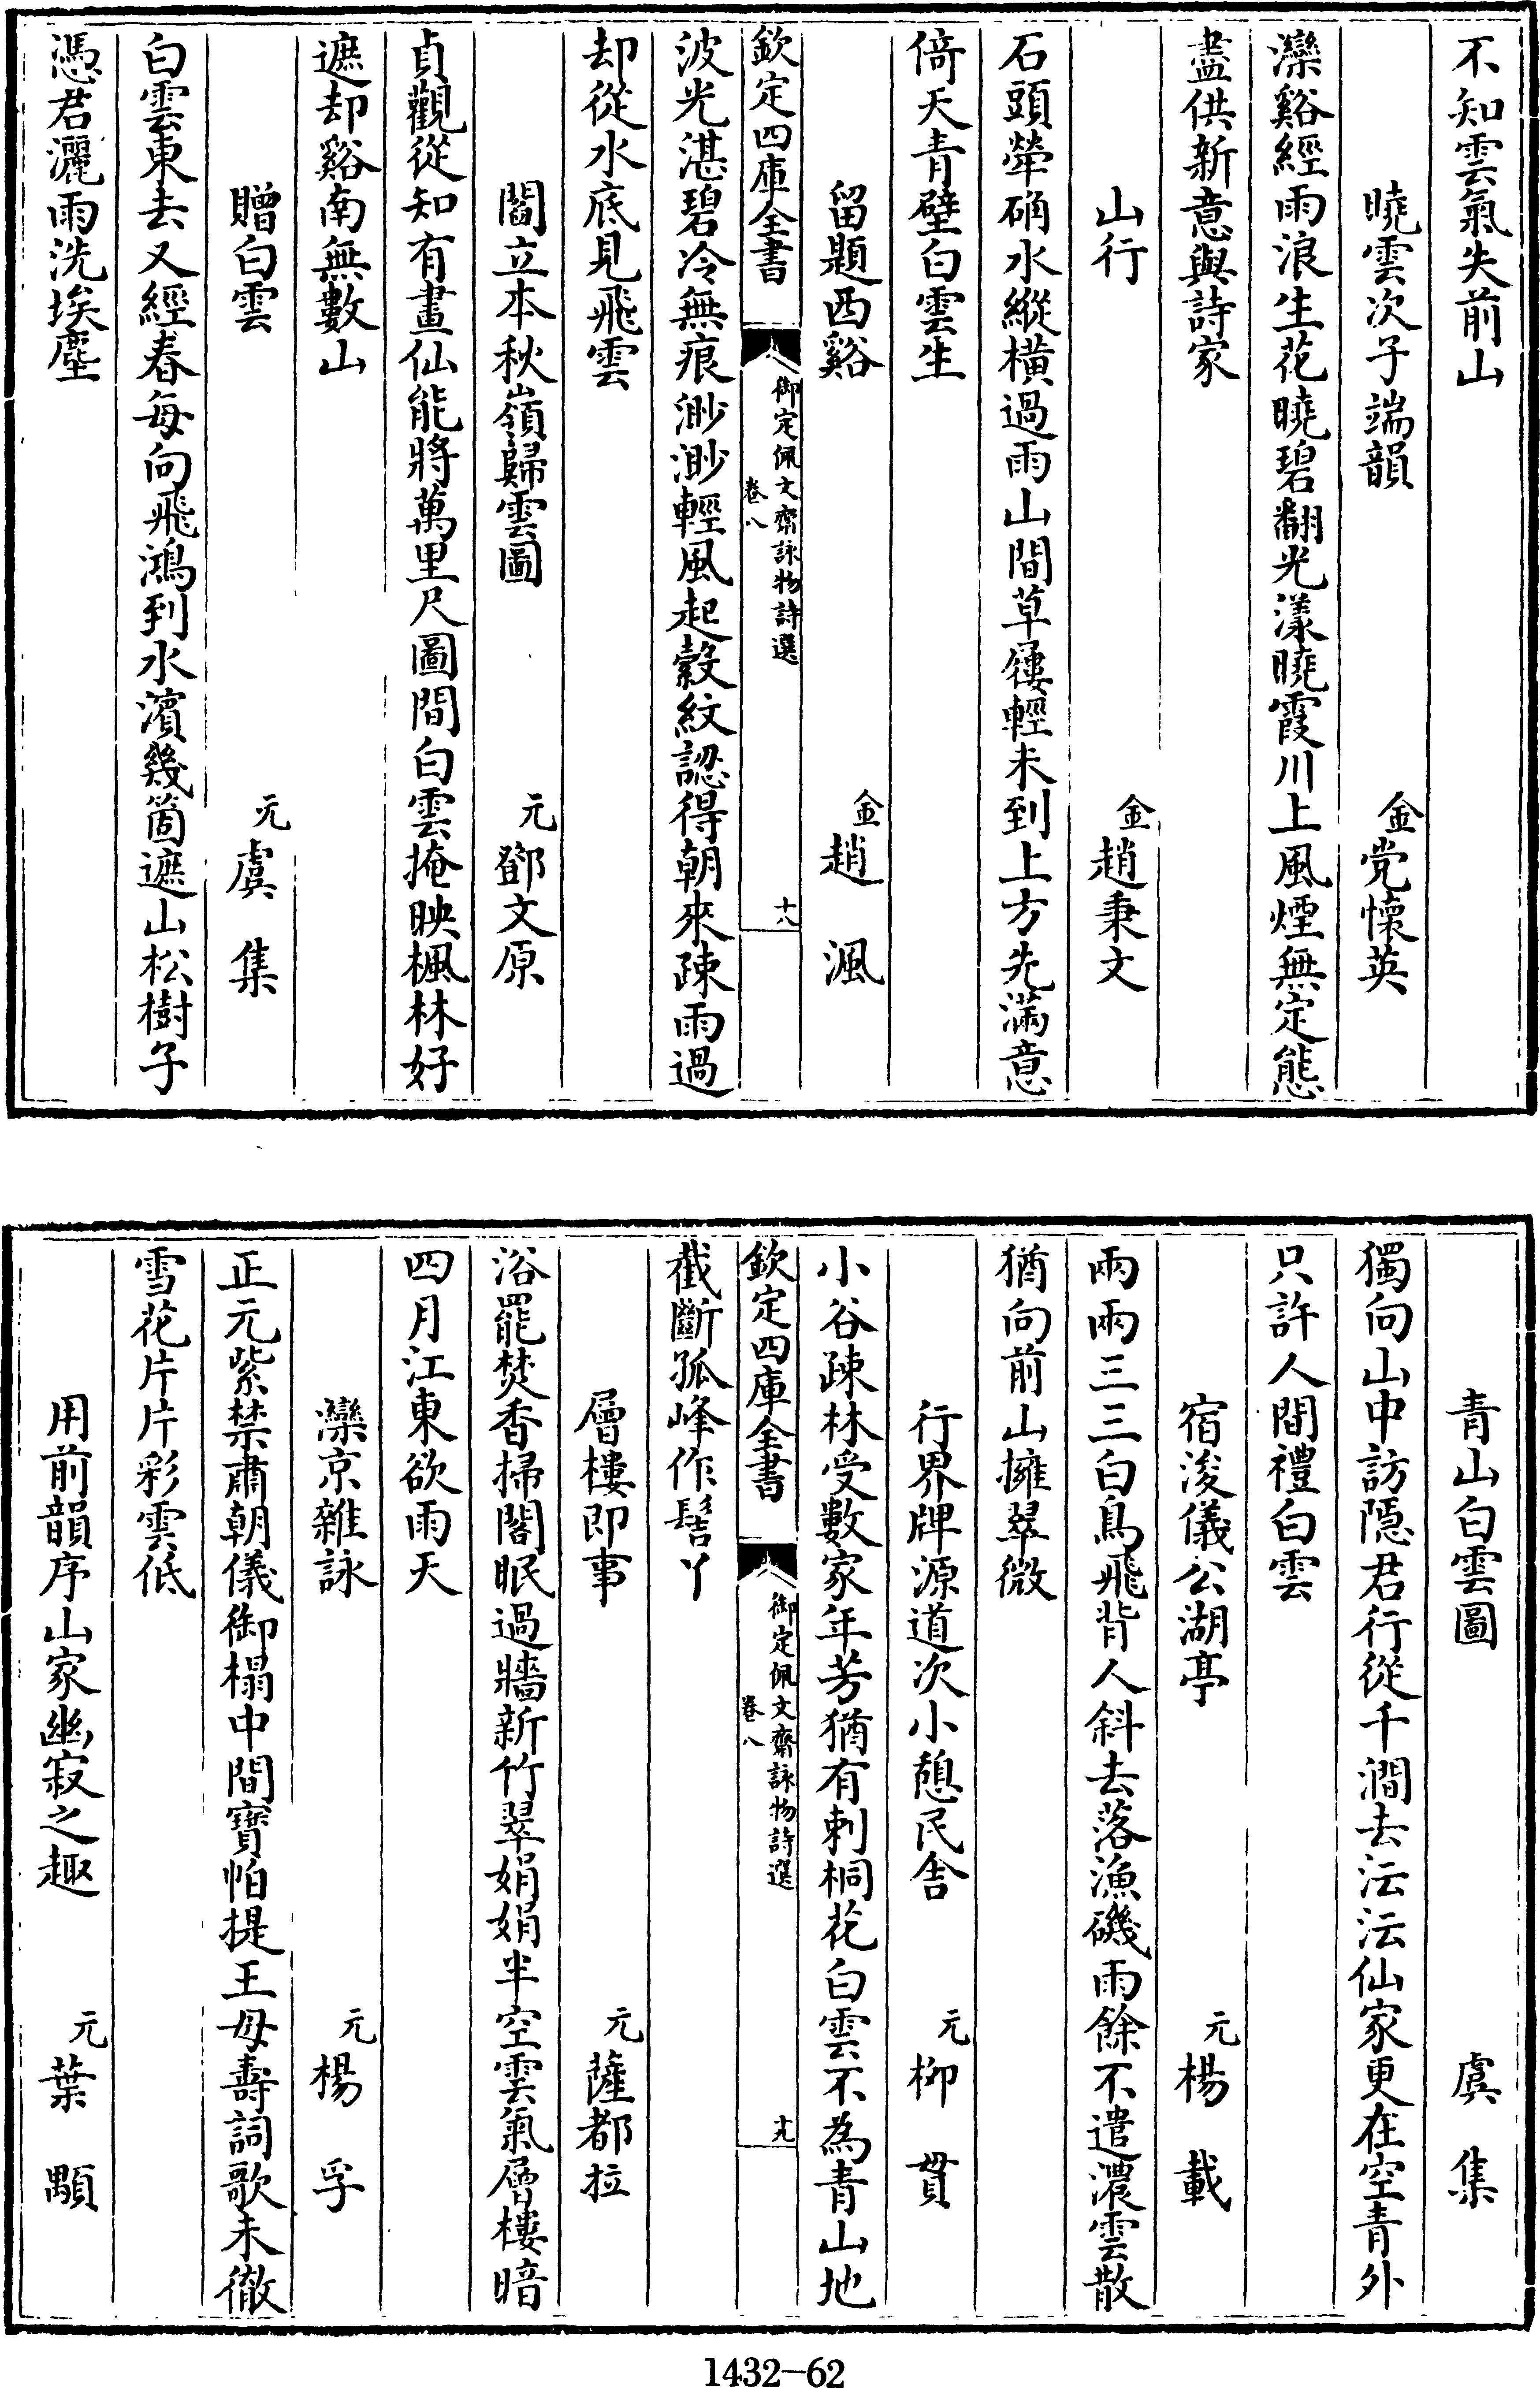 不知雲氣失前山
曉雲次子端韻　金党懷英
灤谿經雨浪生花曉碧翻光漾曉霞川上風煙無定態
盡供新意與詩家
山行　金趙秉文
石頭犖确水縱橫過雨山間草屨輕未到上方先滿意
倚天青壁白雲生
留題西谿　金趙渢
欽定四庫全書　御定佩文齋詠物詩選　卷八　十八
波光湛碧冷無痕渺渺輕風起縠紋認得朝來疎雨過
却從水底見飛雲
閻立本秋嶺歸雲圖　元鄧文原
貞觀從知有畫仙能將萬里尺圖間白雲掩映楓林好
遮却谿南無數山
贈白雲　元虞集
白雲東去又經春每向飛鴻到水濱幾箇遮山松樹子
憑君灑雨洗埃塵
青山白雲圖　虞集
獨向山中訪隱君行從千澗去沄沄仙家更在空青外
只許人間禮白雲
宿浚儀公湖亭　元楊載
兩兩三三白鳥飛背人斜去落漁磯雨餘不遣濃雲散
猶向前山擁翠微
行界牌源道次小憩民舍　元柳貫
小谷疎林受數家年芳猶有刺桐花白雲不為青山地
欽定四庫全書　御定佩文齋詠物詩選　卷八　十九
截斷孤峰作髻丫
層樓即事　元薩都拉
浴罷焚香掃閣眠過牆新竹翠娟娟半空雲氣層樓暗
四月江東欲雨天
灤京雜詠　元楊孚
正元紫禁肅朝儀御榻中間寶帕提王母壽詞歌未徹
雪花片片彩雲低
用前韻序山家幽寂之趣　元葉顒
1432-62